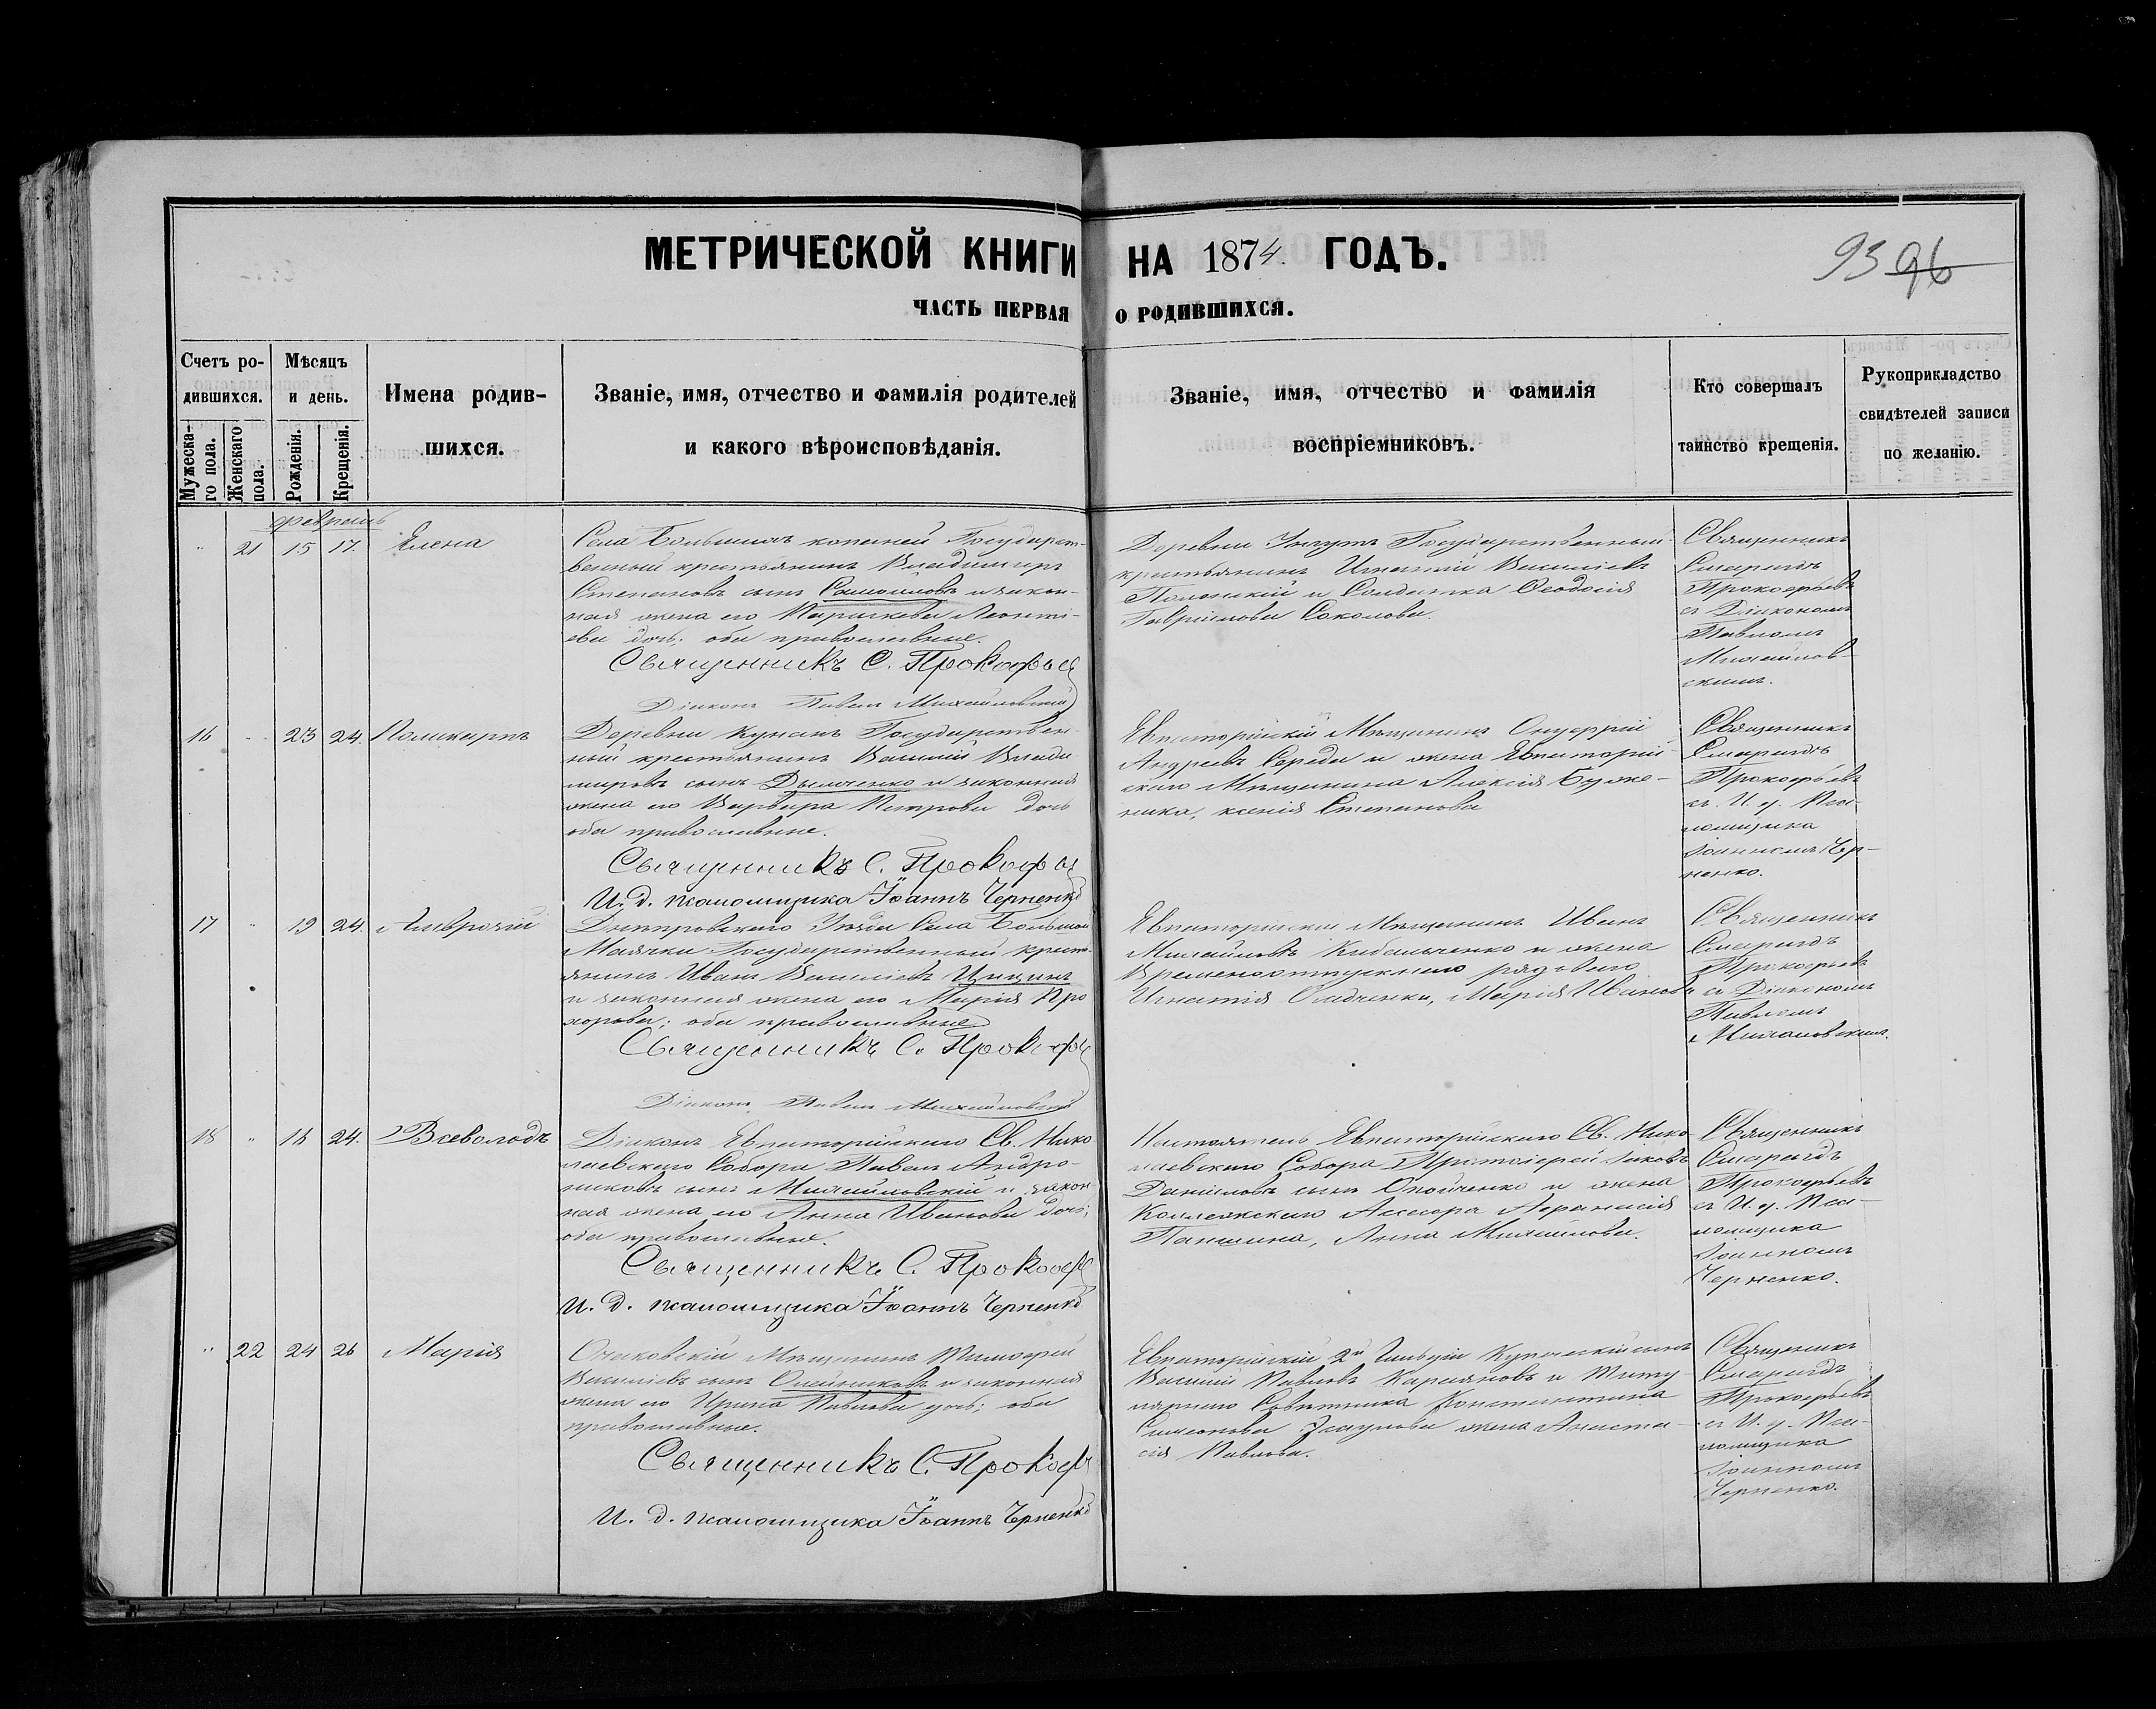 МЕТРИЧЕСКОЙ КНИГИ НА 1874. ГОДЪ.
93 96
ЧАСТЬ ПЕРВАЯ О РОДИВШИХСЯ.
Счетъ ро-
дившихся.
Мужеска-
го пола.
Женскаго
пола.
Мѣсяцъ
и день.
Рожденія.
Крещенія.
Имена родив-
шихся.
Званіе, имя, отчество и фамилія родителей
и какого вѣроисповѣданія.
Званіе, имя, отчество и фамилія
воспріемниковъ.
Кто совершалъ
таинство крещенія.
Рукоприкладство
свидѣтелей записи
по желанію.
Февраль
" 21 15 17. Елена
Села Большихъ копаней Государст-
венный крестьянинъ Владиміръ
Степановъ сынъ Самойловъ и закон-
ная жена его Параскева Леонті-
ева дочь; оба православные.
Священникъ С. Прокофьевъ
Діаконъ Павелъ Михайловскій
Деревни Государственный
крестьянинъ Игнатій Васильевъ
и Солдатка Ѳеодосія
Гавріилова Соколова.
Священникъ
Смарагдъ
Прокофьевъ
съ Діакономъ
Павломъ
Михайлов-
скимъ.
16 " 23 24. Поликарпъ
Деревни Государствен-
ный крестьянинъ Василій Влади
міровъ сынъ и законная
жена его Варвара Петрова дочь
оба православные.
Священникъ С. Прокофьевъ
И. д. псаломщика Іоаннъ Черненко
Евпаторійскій Мѣщанинъ Онуфрій
Андреевъ Середа и жена Евпаторій-
скаго Мѣщанина Алексія
Ксенія Степанова
Священникъ
Смарагдъ
Прокофьевъ
съ И. д. Пса-
ломщика
Іоанномъ Чер-
ненко.
17 " 19 24. Амвросій
Днѣпровскаго Уѣзда Села Большой
Маячки Государственный крест-
янинъ Иванъ Васильевъ Цицинъ
и законная жена его Марія Про
хорова; оба православные
Священникъ С. Прокофьевъ
Діаконъ Павелъ Михайловскій
Евпаторійскій Мѣщанинъ Иванъ
Михайловъ Кибальченко и жена
Временноотпускнаго рядоваго
Игнатія Марія Иванова
Священникъ
Смарагдъ
Прокофьевъ
съ Діакономъ
Павломъ
Михаловскимъ.
18 " 18 24. Всеволодъ
Діаконъ Евпаторійскаго Св. Нико
лаевскаго Собора Павелъ Андро-
никовъ сынъ Михайловскій и закон
ная жена его Анна Иванова дочь;
оба православные.
Священникъ С. Прокофьевъ
И. д. псаломщика Іоаннъ Черненко
Настоятель Евпаторійскаго Св. Нико
лаевскаго Собора Протоіерей Іаковъ
Даніиловъ сынъ и жена
Коллежскаго Асесора Аѳанасія
Папшина, Анна Михайлова.
Священникъ
Смарагдъ
Прокофьевъ
съ И. д. Пса-
ломщика
Іоанномъ
Черненко.
" 22 24 26 Марія
Очаковскій Мѣщанинъ Тимоѳей
Васильевъ сынъ Олейниковъ и законная
жена его Ирина Павлова дочь; оба
православные.
Священникъ С. Прокофьевъ
И. д. псаломщика Іоаннъ Черненко
Евпаторійскій 2й Гильдіи Купеческій сынъ
Василій Павловъ и Титу-
лярнаго Совѣтника Константина
Симеонова жена Анаста-
сія Павлова.
Священникъ
Смарагдъ
Прокофьевъ
съ И. д. Пса-
ломщика
Іоанномъ
Черненко.